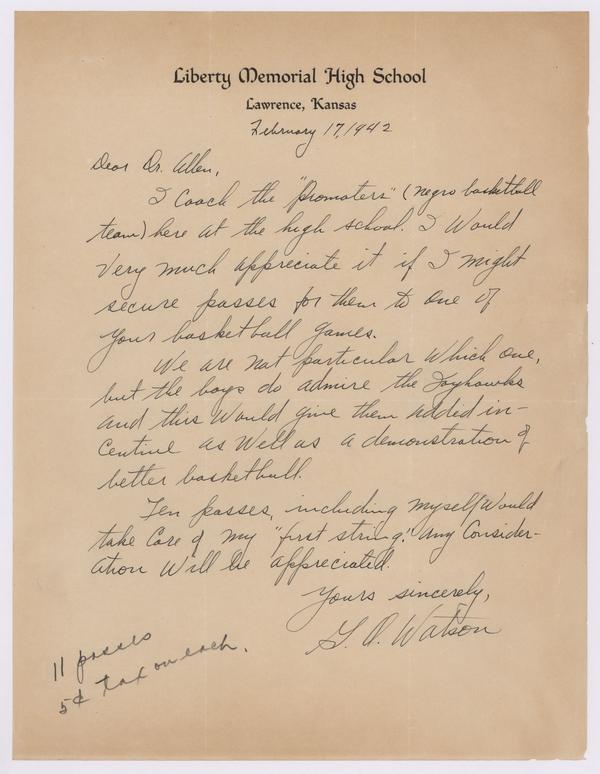 Liberty Memorial High School
Lawrence, Kansas
February 17, 1942
Dear Dr. Allen,
I Coach the "Promoters" (negro basketball
team) here at the high school. I Would
Very much appreciate it if I might
secure passes for them to one of
your basketball games.
We are not particular Which one,
but the boys do admire the Jayhawks
and this Would give them added in-
centive as Well as a demonstration of
better basketball.
Ten passes, including myself, Would
take Care of my "first string." Any Consider-
ation Will be appreciated.
Yours sincerely,
Watson
11 passes
5¢ tax on each.